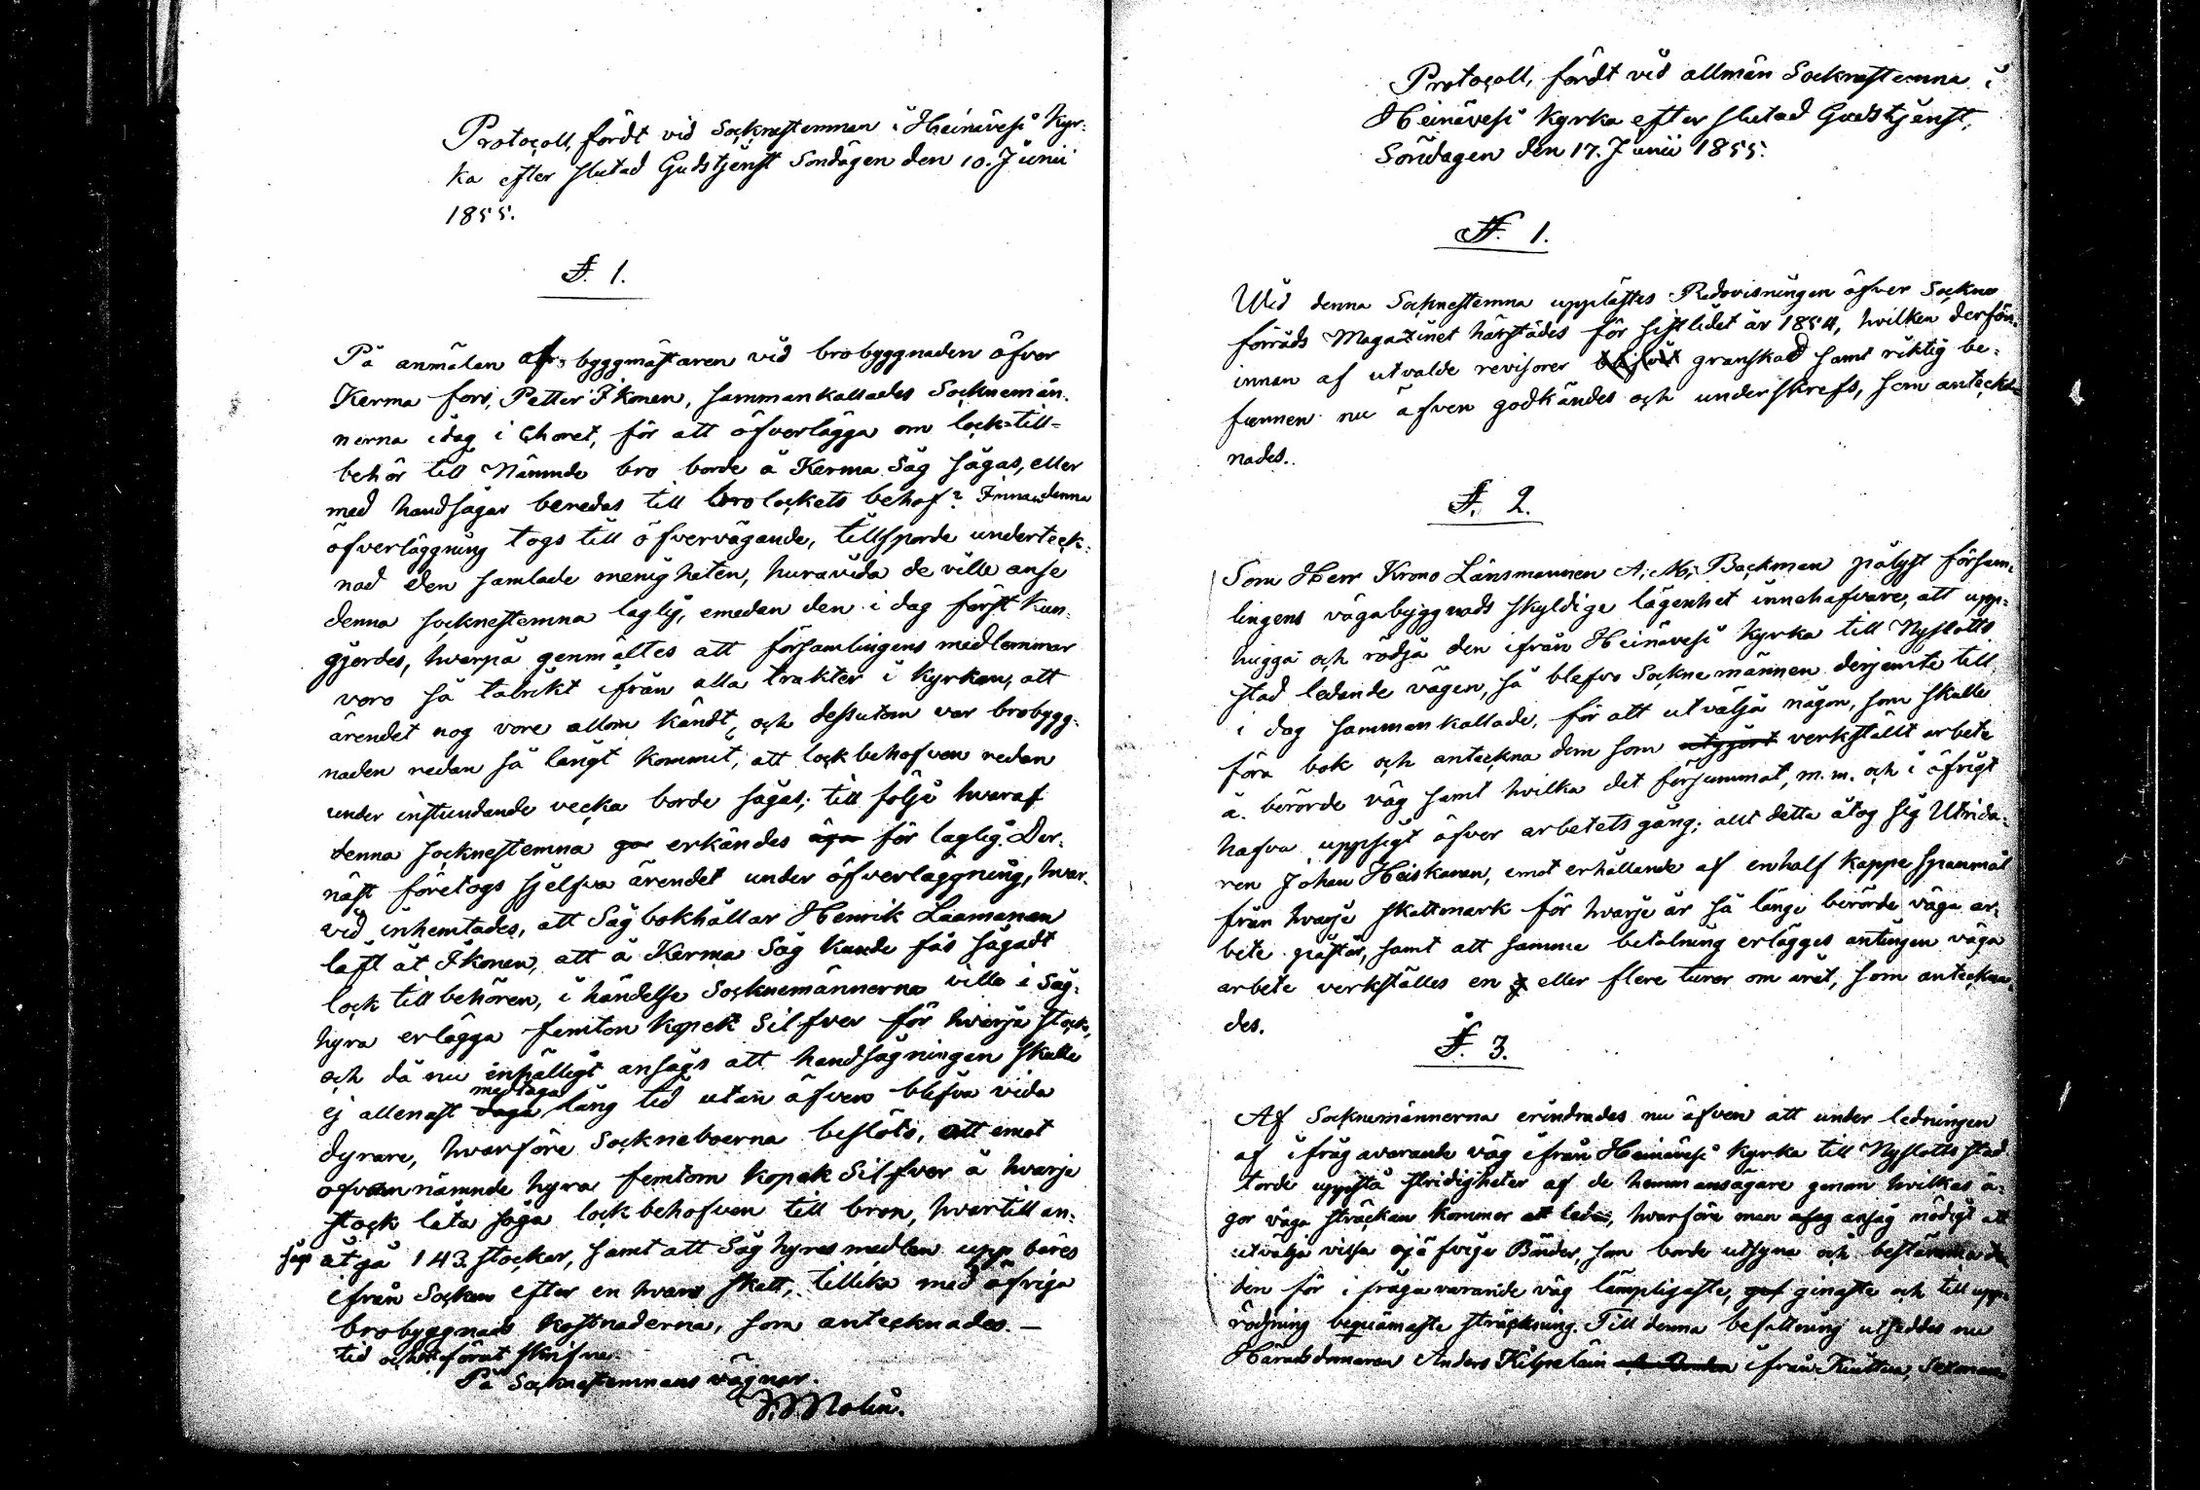 Protocoll, fördt vid Socknestemman i Heinävesi Kyr-
ka efter slutad Gudstjenst Söndagen den 10. Junii
1855.
§. 1.
På anmälan af byggmästaren vid brobyggnaden öfver
Kerma fors, Petter Ikonen, sammankallades Socknemän-
nerna idag i Choret, för att öfverlägga om lock-till-
behör till Nämnde bro borde å Kerma Såg sågas, eller
med handsågar beredas till brolockets behof? Innan denna
öfverläggning togs till öfvervägande, tillsporde underteck-
nad den samlade menigheten, huruvida de ville anse
denna socknestemna laglig, emedan den i dag först kun-
gjordes, hvarpå genmältes att församlingens medlemmar
voro så talrikt ifrån alla trakter i Kyrkan, att
ärendet nog vore allom kändt, och dessutom var brobygg-
naden redan så långt kommit, att lockbehofven redan
under instundande vecka borde sågas; till följe hvaraf
denna socknestemna erkändes för laglig. Der-
näst företogs sjelfva ärendet under öfverläggning, hvar-
vid inhemtades, att Sågbokhållar Henrik Laamanen
låft åt Ikonen, att å Kerma Såg kunde fås sågadt
lock tillbehören, i händelse Socknemännerna ville i Såg-
hyra erlägga femton Kopek Silfver för hvarje stock,
och då nu enhälligt ansågs att handsågningen skulle
ej allenast medtaga lång tid utan äfven blifva vida
dyrare, hvarföre Sockneboerna beslöts, att emot
ofvannämnde hyra femton kopek Silfver å hvarje
stock låta såga lockbehofven till bron, hvartill an-
sågs åtgå 143 stockar, samt att Såghyresmedlen uppbäres
ifrån Socken efter en hvars skatt, tillika med öfriga
brobyggnads kostnaderna, som antecknades. —
tid och ort förut skrifne.
På Socknestemmans vägnar.
Molin.
Protocoll, fördt vid allmän Socknestemna i
Heinävesi Kyrka efter slutad Gudstjenst,
Söndagen den 17. Junii 1855.
§. 1.
Wid denna Socknestemna upplästes Redovisningen öfver Sockne
förråds Magazinet härstädes för sistlidet år 1854, hvilken derför-
innan af utvalde revisorer blifvit granskad samt riktig be-
funnen nu äfven godkändes och underskrefs, som anteck-
nades.
§. 2.
Som Herr Krono Länsmannen A. M. Backman pålyst försam-
lingens vägabyggnads skyldige lägenhet innehafvare, att upp-
hugga och rödja den ifrån Heinävesi Kyrka till Nyslotts
stad ledande vägen, så blefvo Sockne männen derjemte till
i dag sammankallade, för att utvälja någon, som skulle
föra bok och anteckna dem som utgjort verkställt arbete
å berörde väg samt hvilka det försummat, m. m. och i öfrigt
hafva uppsigt öfver arbetets gång; allt detta åtog sig Utrida-
ren Johan Heiskanen, emot erhållande af en half kappe spannmål
från hvarje skattmark för hvarje år så länge berörde väga ar-
bete påstår, samt att samma betalning erlägges antingen väga
arbete verkställes en eller flere turer om året, som anteckna-
des.
§. 3.
Af Socknemännerna erindrades nu äfven att under ledningen
af ifrågavarande väg ifrån Heinävesi Kyrka till Nyslotts stad
torde uppstå stridigheter af de hemmansägare genom hvilkas ä-
gor väga sträckan kommer att ledas, hvarföre man ansåg nödigt att
utvälja vissa ojäfvige Bönder, som borde utsyna och bestämma
den för i fråga varande väg lämpligaste, ginaste och till upp-
rödjning beqvämaste sträckning. Till denna befattning utseddes nu
Häradsdomaren Anders Kilpeläin ifrån